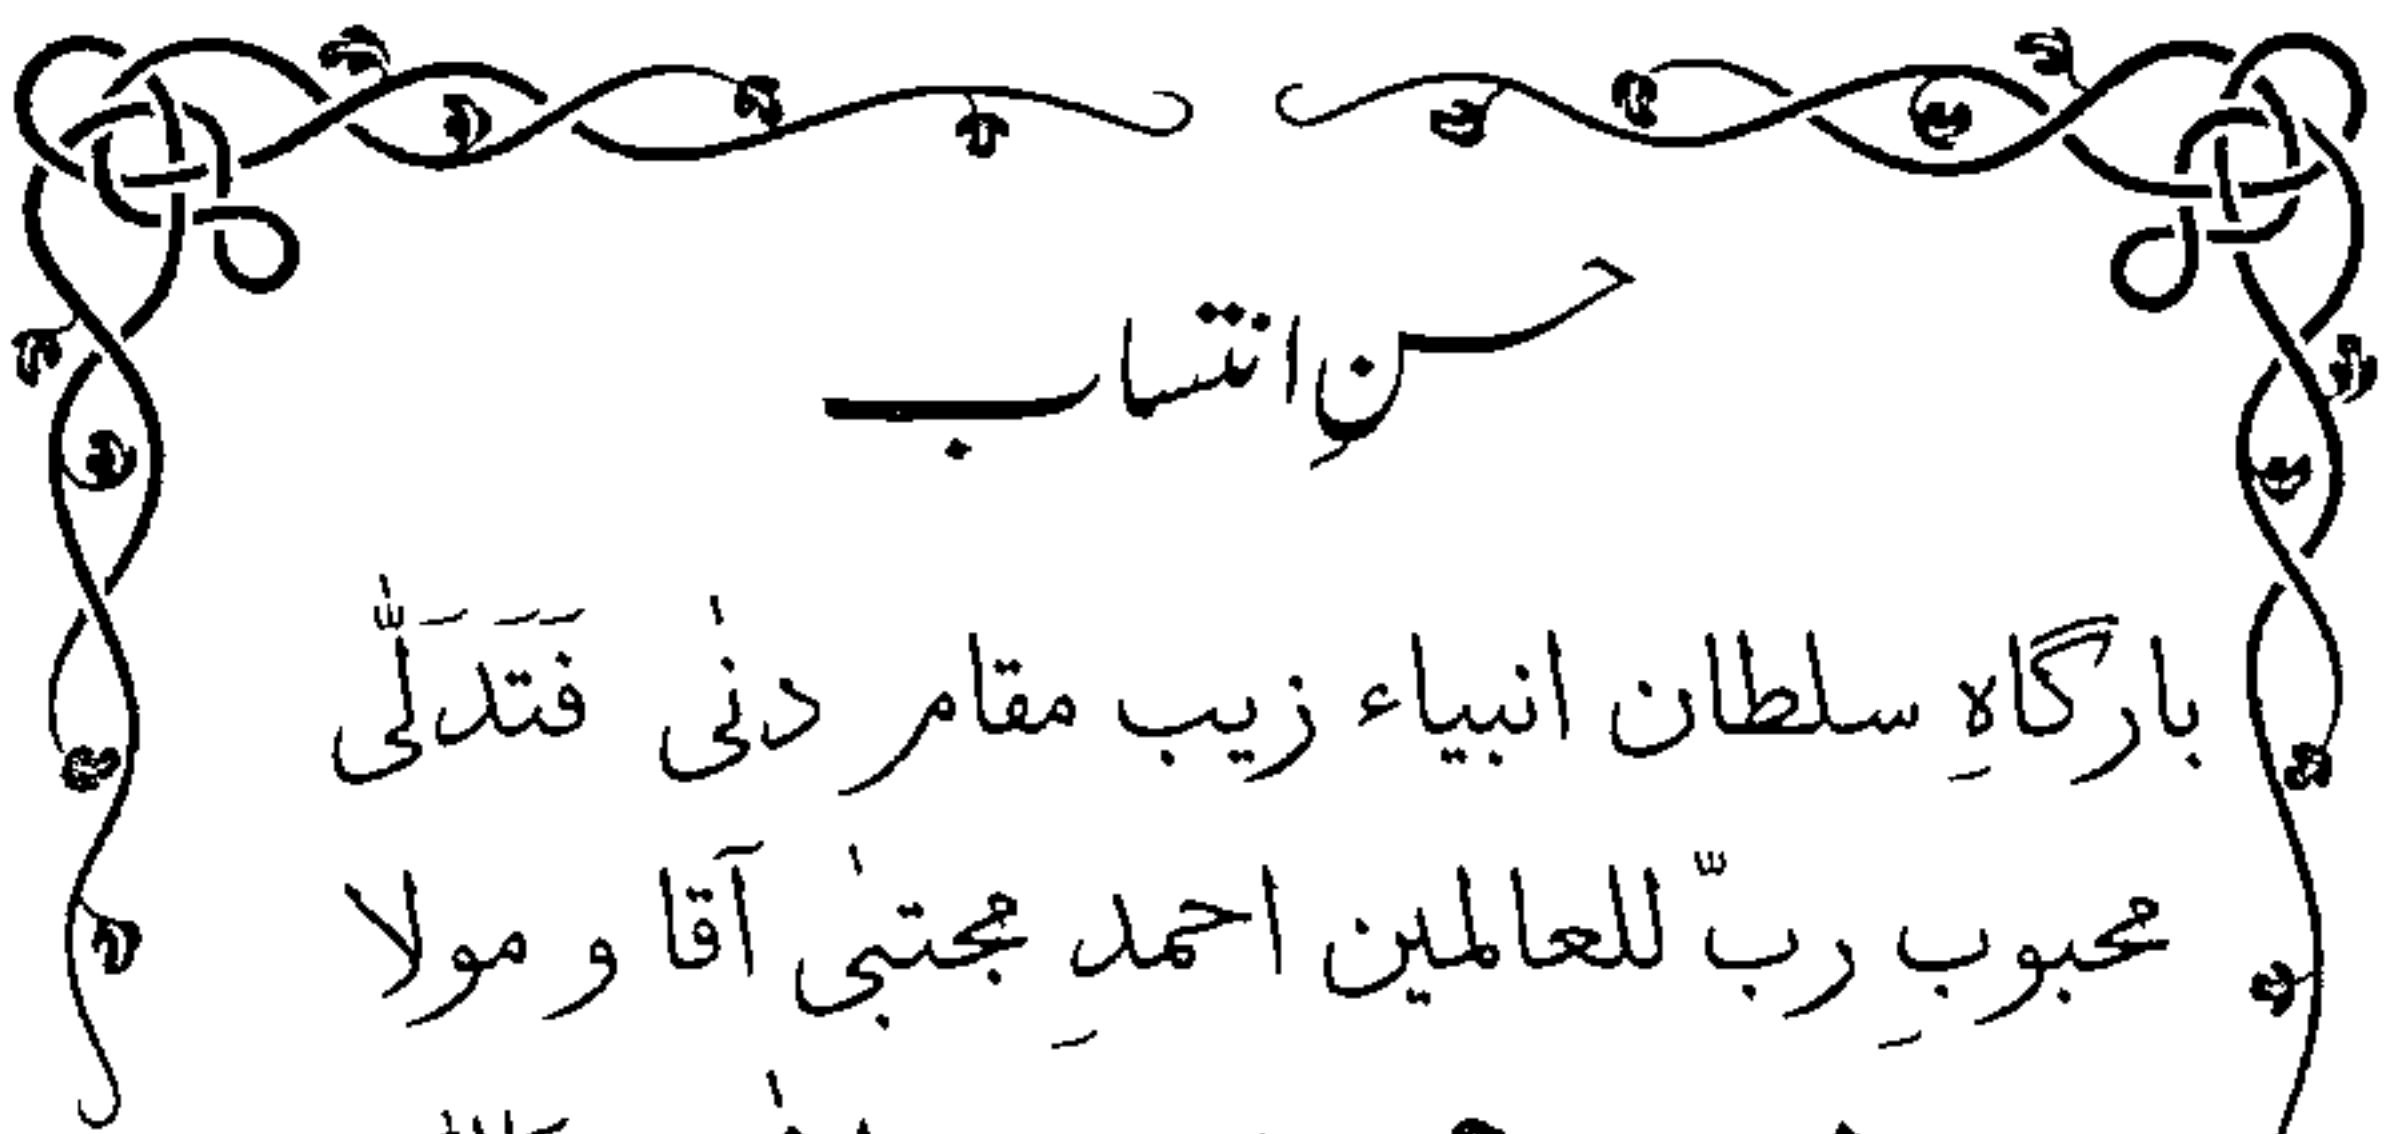 حسنِ انتساب
بارگاہِ سلطان انبیاء زیب مقام دنٰی فَتَدَلّٰی
محبوبِ ربّ للعالمین احمدِ مجتبیٰ آقا و مولا